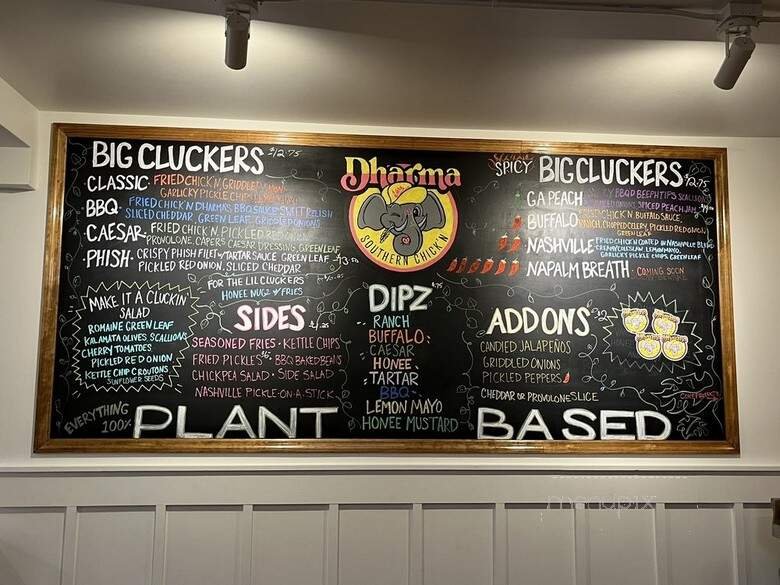 BIG CLUCKERS $12.75
CLASSIC · FRIED CHICK'N GRIDDLED
GARLICKY PICKLE CHIPS
BBQ · FRIED CHICK'N DHARMAS BBQ SAUCE SWEET RELISH
SLICED CHEDDAR GREEN LEAF GRIDDLED ONIONS
CAESAR · FRIED CHICK'N, PICKLED RED ONION
PROVOLONE, CAPERS CAESAR DRESSING, GREEN LEAF
PHISH · CRISPY PHISH FILET w/ TARTAR SAUCE GREEN LEAF
PICKLED RED ONION, SLICED CHEDDAR
FOR THE LIL CLUCKERS
HONEE NUGZ & FRIES
MAKE IT A CLUCKIN'
SALAD
ROMAINE GREEN LEAF
KALAMATA OLIVES SCALLIONS
CHERRY TOMATOES
PICKLED RED ONION
KETTLE CHIP CROUTONS
SUNFLOWER SEEDS
SIDES
SEASONED FRIES · KETTLE CHIPS
FRIED PICKLES · BBQ BAKED BEANS
CHICKPEA SALAD · SIDE SALAD
NASHVILLE PICKLE-ON-A-STICK
Dharma
SOUTHERN CHICK'N
DIPZ
RANCH
BUFFALO
CAESAR
HONEE
TARTAR
BBQ
LEMON MAYO
HONEE MUSTARD
SPICY BIG CLUCKERS $12.75
GA PEACH
SPICED PEACH JAM
BUFFALO FRIED CHICK'N BUFFALO SAUCE,
RANCH, CHOPPED CELERY, PICKLED RED ONION
GREEN LEAF
NASHVILLE FRIED CHICK'N COATED IN NASHVILLE BLEND
CREAMY COLESLAW, LEMON MAYO,
GARLICKY PICKLE CHIPS, GREEN LEAF
NAPALM BREATH · COMING SOON
ADD ONS
CANDIED JALAPEÑOS
GRIDDLED ONIONS
PICKLED PEPPERS
CHEDDAR OR PROVOLONE SLICE
EVERYTHING
100%
PLANT BASED
menupix